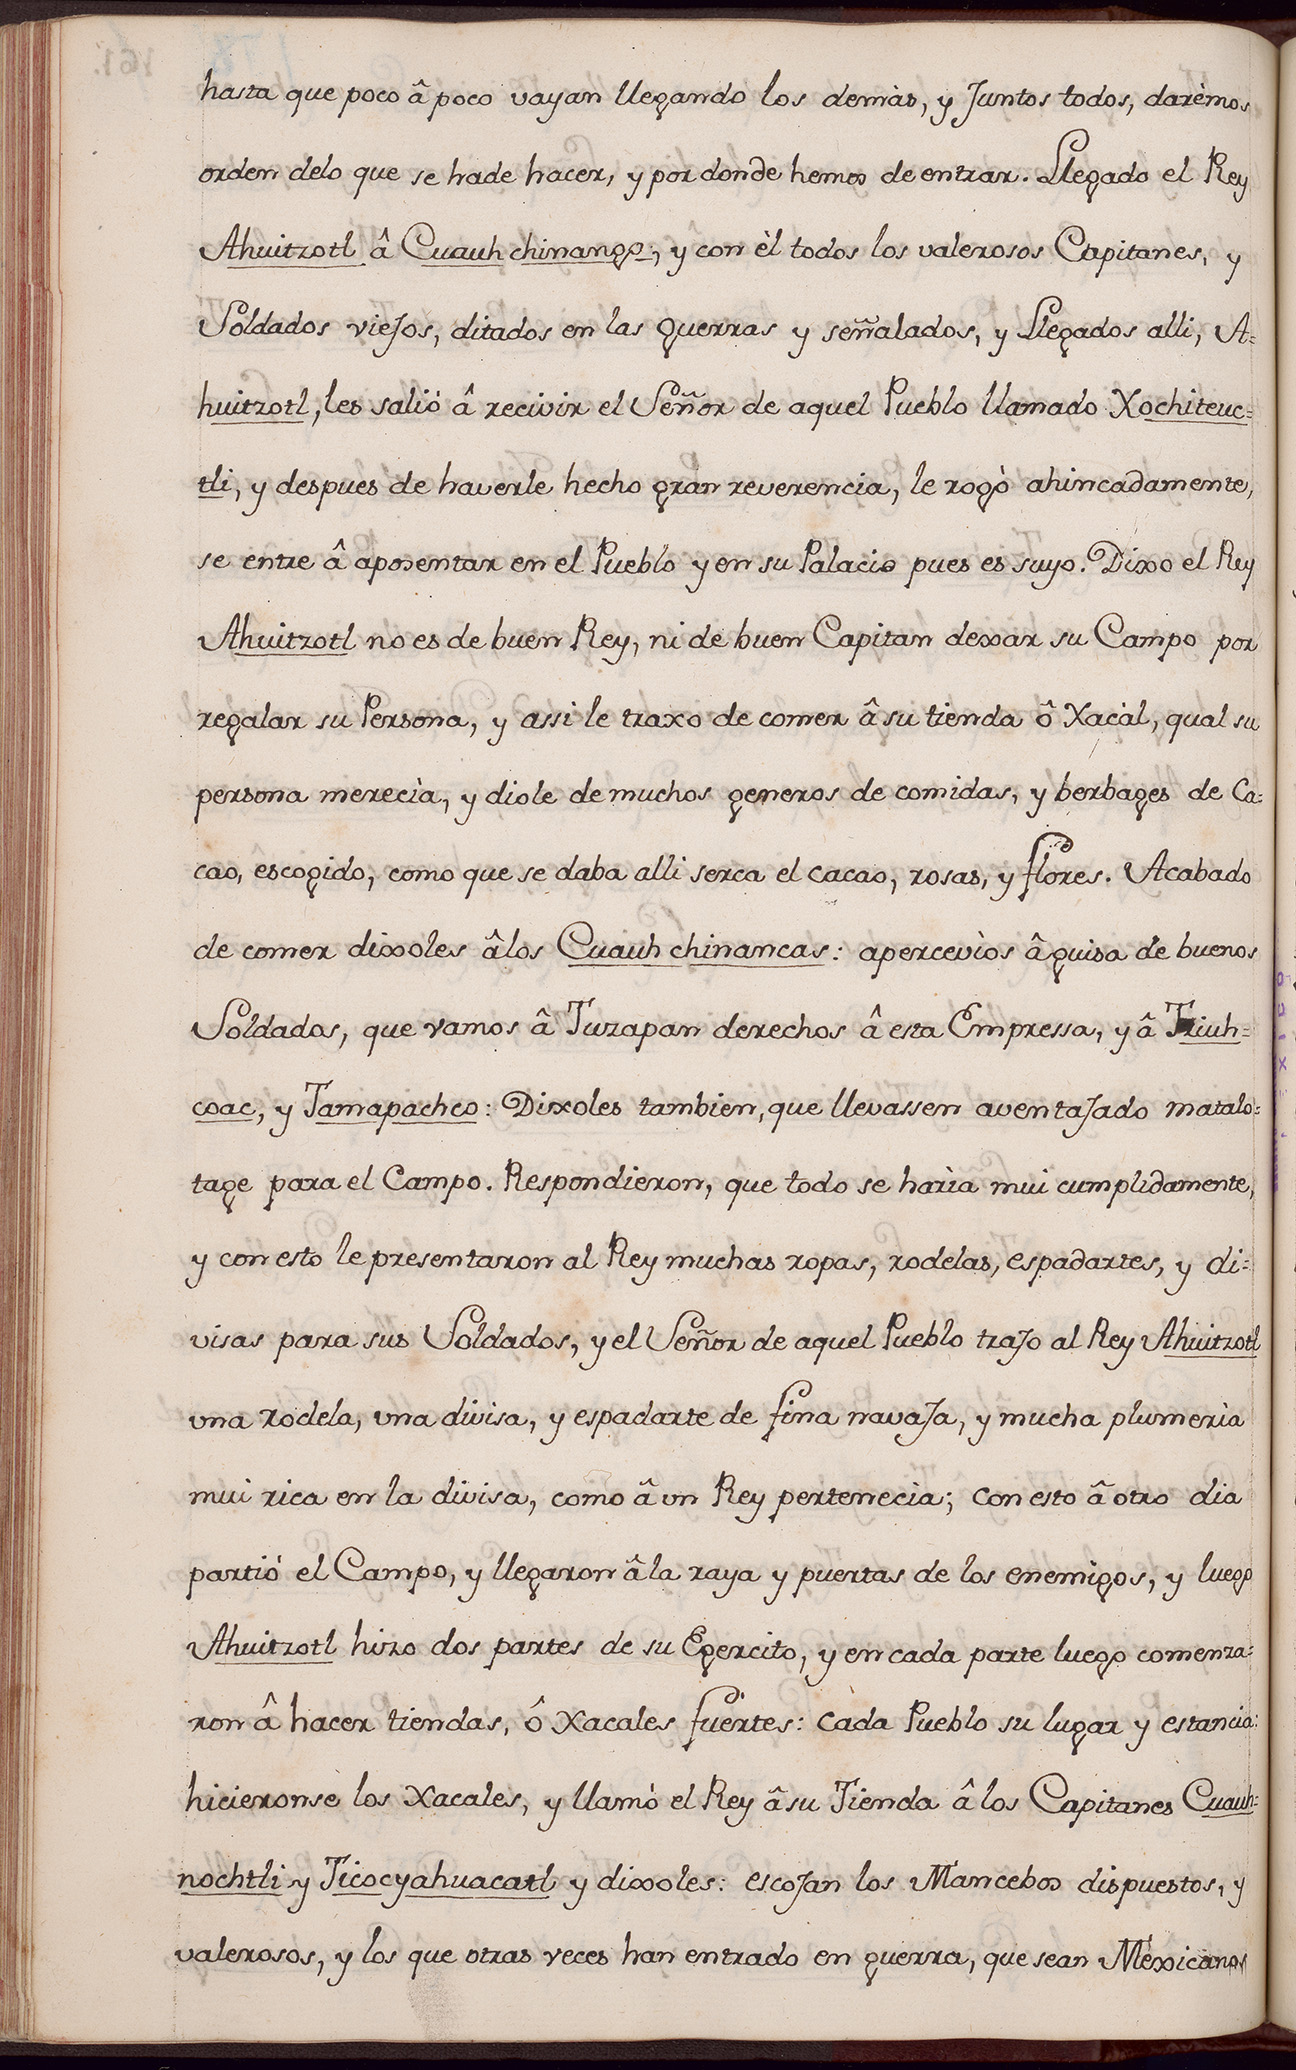 hasta que poco â poco vayan llegando los demàs, y Juntos todos, darèmos
orden delo que se hade hacer, y por donde hemos de entrar. Llegado el Rey
Ahuitzotl â Cuauhchinango, y con èl todos los valerosos Capitanes, y
Soldados vieJos, ditados en las guerras y señalados, y Llegados alli, A=
huitzotl, les salió â recivir el Señor de aquel Pueblo llamado Xochiteuc=
tli, y despues de haverle hecho gran reverencia, le rogò ahincadamente,
se entre â aposentar en el Pueblo y en su Palacio pues es suyo. Dixo el Rey
Ahuitzotl no es de buen Rey, ni de buen Capitan dexar su Campo por
regalar su Persona, y assi le traxo de comer â su tienda ô Xacàl, qual su
persona merecìa, y diole de muchos generos de comidas, y berbages de Ca=
cao, escogido, como que se daba alli serca el cacao, rosas, y flores. Acabado
de comer dixoles âlos Cuauhchinancas: apercevìos â guisa de buenos
Soldados, que vamos â Tuzapan derechos â esta Empressa, y â Tziuh=
coac, y Tamapachco: Dixoles tambien, que llevassen aventaJado matalo=
tage para el Campo. Respondieron, que todo se harìa mui cumplidamente,
y con esto le presentaron al Rey muchas ropas, rodelas, espadartes, y di=
visas para sus Soldados, y el Señor de aquel Pueblo traJo al Rey Ahuitzotl
vna rodela, vna divisa, y espadarte de fina navaJa, y mucha plumerìa
mui rica en la divisa, como â vn Rey pertenecìa; con esto â otro dia
partió el Campo, y llegaron âla raya y puertas de los enemigos, y luego
Ahuitzotl hizo dos partes de su Egercito, y en cada parte luego comenza=
ron â hacer tiendas, ô Xacales fuertes: cada Pueblo su lugar y estancia:
hicieronse los Xacales, y llamò el Rey âsu Tienda â los Capitanes Cuauh=
nochtli y Ticocyahuacatl y dixoles: escoJan los Mancebos dispuestos, y
valerosos, y los que otras veces han entrado en guerra, que sean Mexicanos